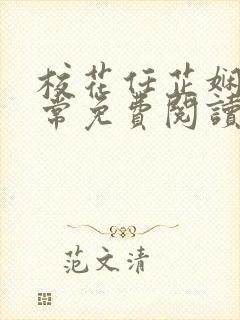 校花任芷娴
常免費閱讀
范文清